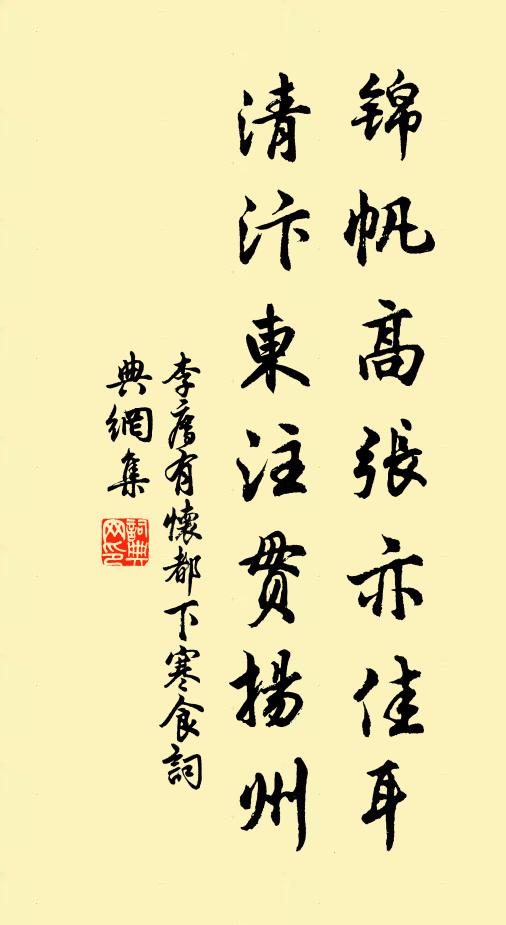 锦帆高張亦佳耳
清汴東注貫揚州
李廌有懷都下寒食詞
典網集
詞典
网印